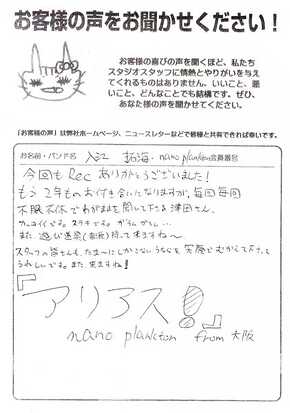 お客様の声をお聞かせください！
お客様の喜びの声を聞くほど、私たち
スタジオスタッフに情熱とやりがいを与え
てくれるものはありません。いいこと、悪
いこと、どんなことでも結構です。ぜひ、
あなた様の声を聞かせてください。
「お客様の声」は弊社ホームページ、ニュースレターなどで皆様と共有できれば幸いです。
お名前・バンド名 入江 拓海・nano plankton 会員番号
今回もRecありがとうございました！
もう2年ものお付き合いになりますが、毎回毎回
不眠不休でわがままを聞いて下さる津田さん、
カッコイイです。ステキです。
また 遊び道具 持って来ますね〜
スタッフの皆さんも、たま〜にしかこないうちなのを 笑顔でむかえて下さって
うれしいです。また来ますね！
『アリアス！』
nano plankton from 大阪